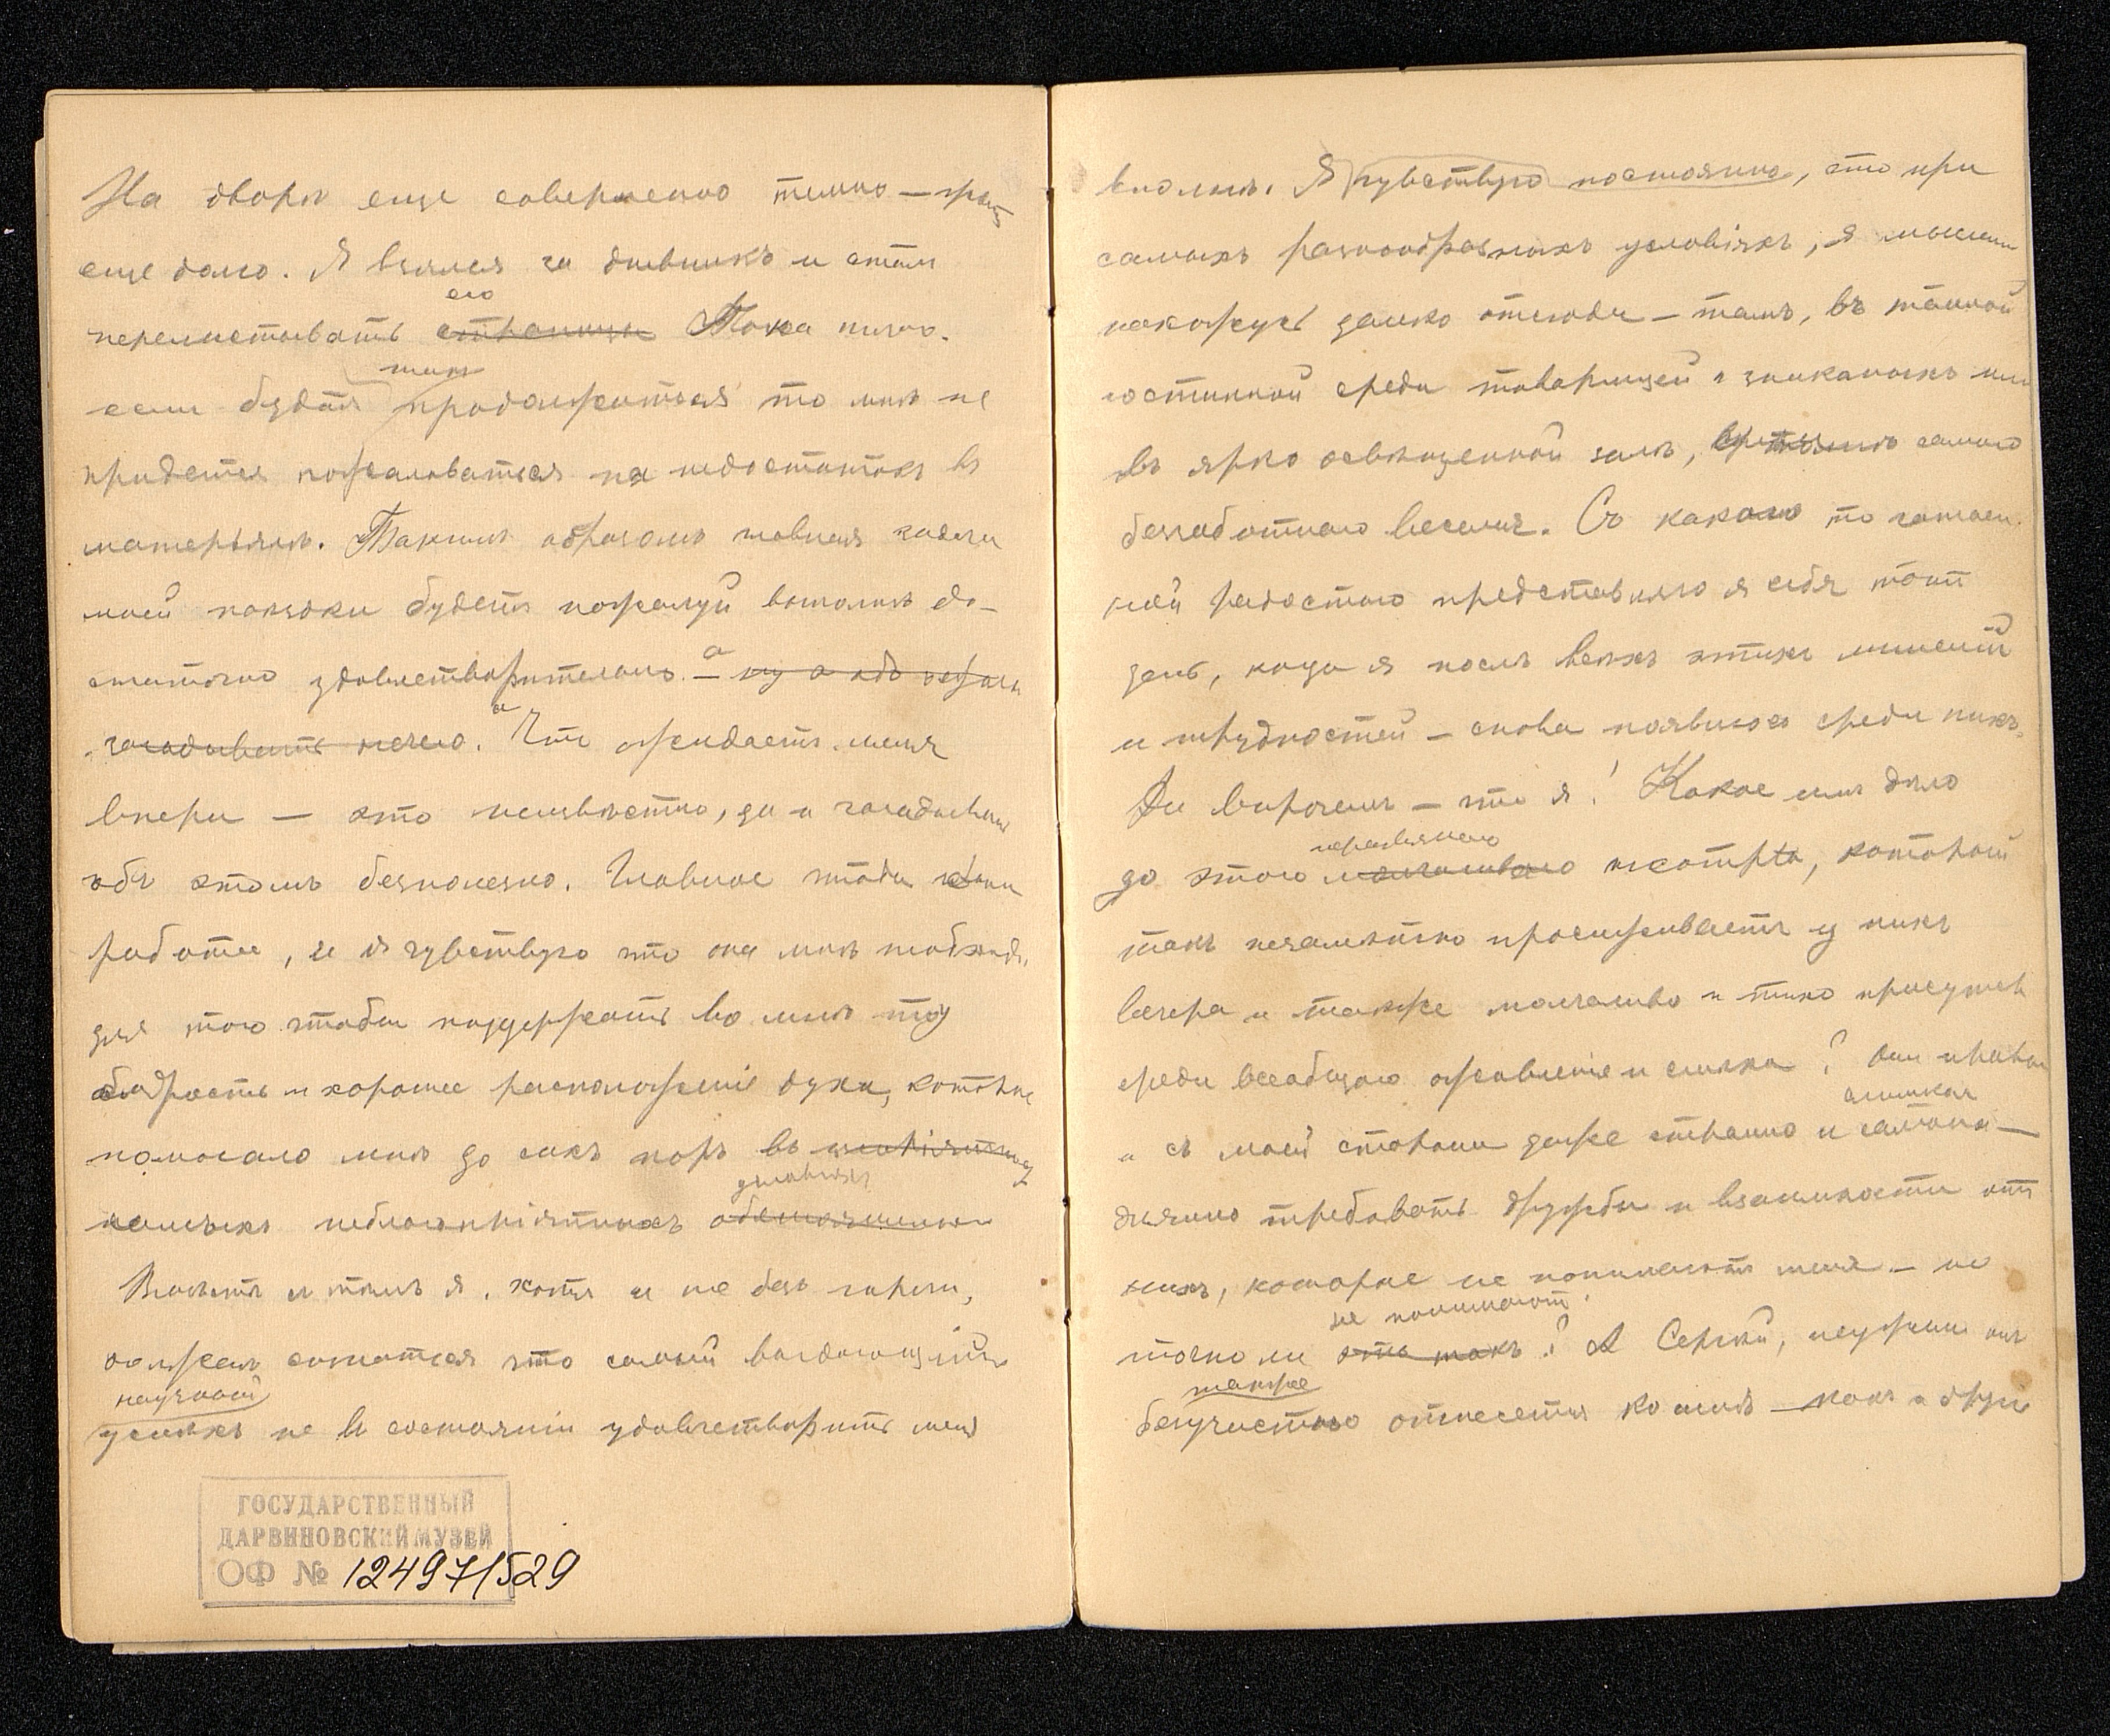 На дворѣ еще совершенно темно — ждать
еще долго. Я взялся за дневникъ и сталъ
его
перелистывать страницы Пока ничего.
такъ
если будетъ продолжаться то мнѣ не
придется пожаловаться на недостатокъ въ
матерьялѣ. Такимъ образомъ главная задача
моей поѣздки будетъ пожалуй вполнѣ до-
статочно удовлетворительно. — ну а объ
загадывать нечего. Что ожидаетъ меня
впереди — это неизвѣстно, да и загадывать
объ этомъ безполезно. Главное чтобы
работа, и я чувствую что она мнѣ необходима
для того чтобы поддержать во мнѣ ту
бодрость и хорошее расположеніе духа, которое
помогало мнѣ до сихъ поръ въ
условіяхъ
самыхъ неблагопріятныхъ
Вмѣстѣ и тѣмъ я, хотя и не безъ горечи,
долженъ сознаться что самый выдающійся
научный
успѣхъ не въ состояніи удовлетворить меня
ГОСУДАРСТВЕННЫЙ
ДАРВИНОВСКИЙ МУЗЕЙ
ОФ № 12497/529
вполнѣ. Я чувствую постоянно, что при
самыхъ разнообразныхъ условіяхъ, я мыслями
нахожусь далеко отсюда — тамъ, въ
гостинной среди товарищей и знакомыхъ или
въ ярко освѣщенной залѣ, самаго
беззаботнаго веселья. Съ какою то
ной радостью представляю я себѣ тотъ
день, когда я послѣ всѣхъ этихъ лишеній
и трудностей — снова появлюсь среди нихъ.
Да впрочемъ — что я! Какое имъ дѣло
до этого молчаливаго субъекта, который
такъ незамѣтно просиживаетъ у нихъ
вечера и также молчаливо и тихо присутств
среди всеобщаго оживленія и смѣха? Они правы
слишкомъ
и съ моей стороны даже странно и
требовать дружбы и взаимности отъ
нихъ, которые не понимаютъ меня — но
не понимаютъ
точно ли это такъ? А Сергѣй, неужели онъ
также
безучастно отнесется ко мнѣ — какъ и други